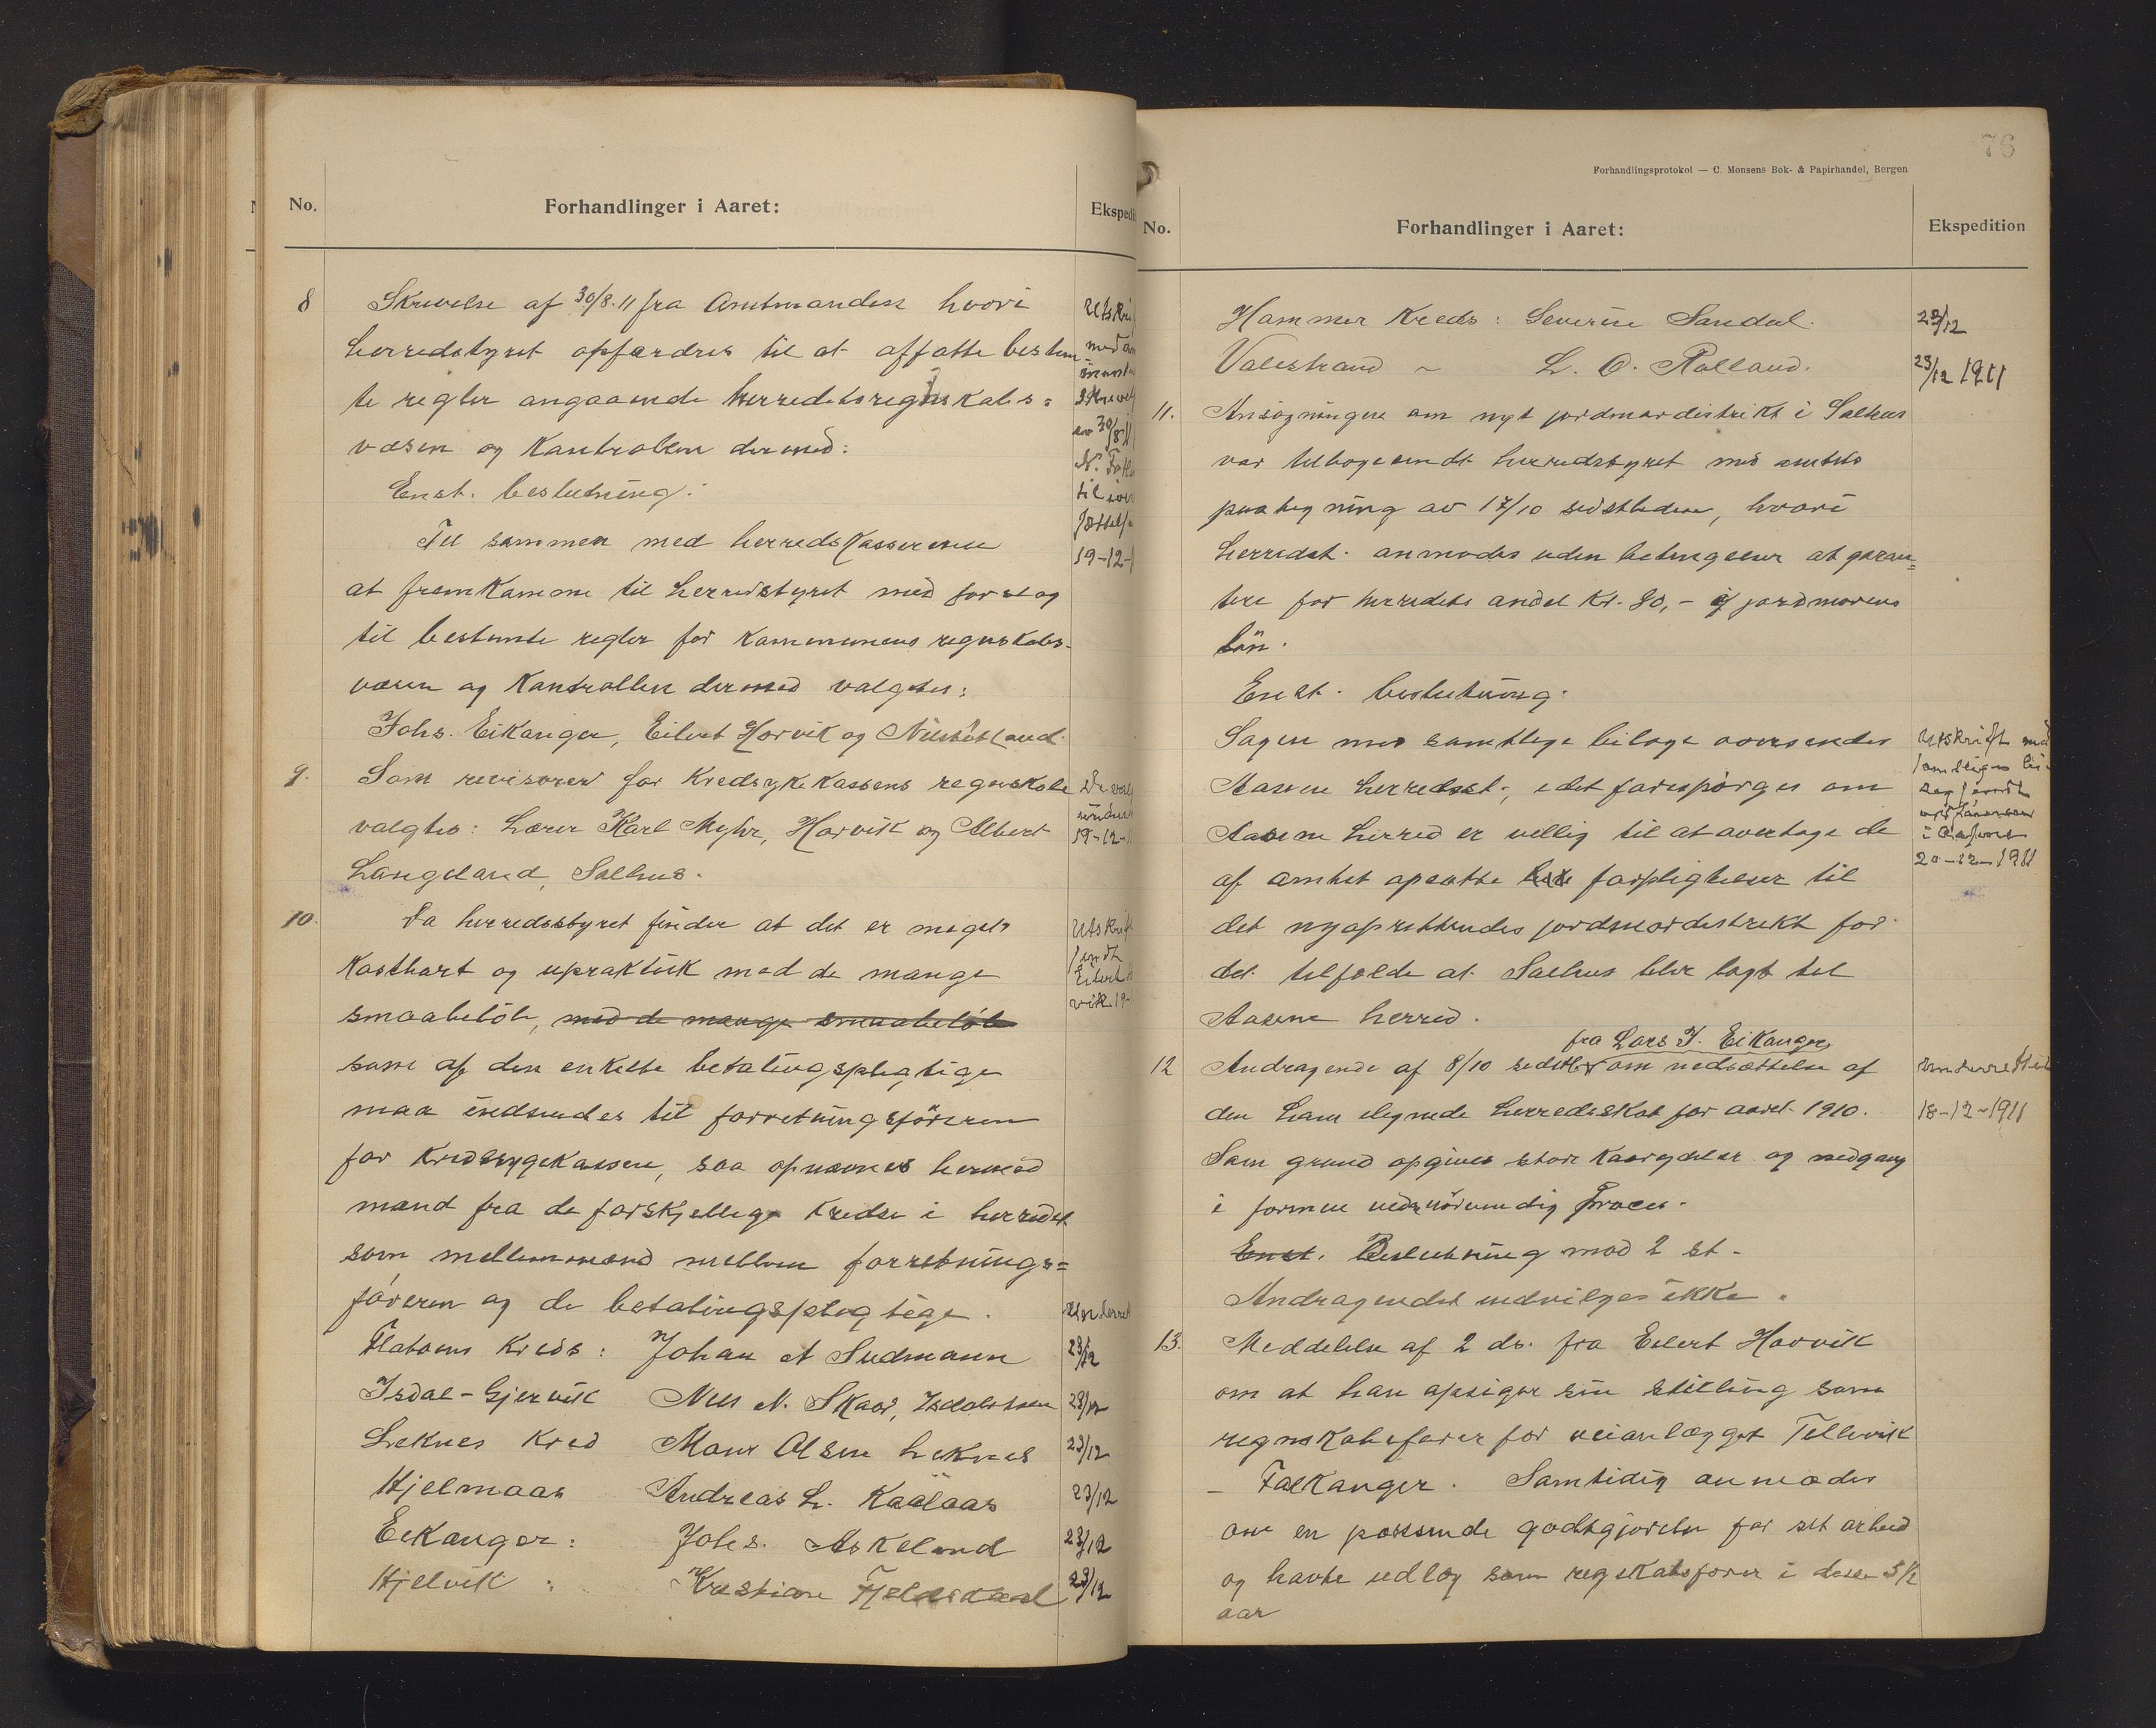 No.
Forhandlinger i Aaret:
8
Skrivelse af 30/8. 11 fra Amtmanden hvori
herredstyret opfordres til at affatte bestem=
te regler angaaende herredets regnskabs=
væsen og Kontrollen dermed:
Enst. beslutning:
Til sammen med herredskassereren
at fremkomme til herredstyret med forslag
til bestemte regler for kommunens regnskabs-
væsen og Kontrollen dermed valgtes:
Johs. Eikanger, Eilert Horvik og
9.
Som revisorer for Kredsykekassens regnskab
valgtes: Lærer Karl Myhr, Horvik og Albert
Langeland, Salhus.
19-12-
10.
Da herredsstyret finder at det er meget
Kostbart og upraktisk med de mange
smaabeløb, med de mange smaabeløb
som af den enkelte betalingspligtige
maa indsendes til forretningsføreren
for Kredssygekassen, saa opnævnes hermed
mænd fra de forskjellige kredse i herredet
som mellemmænd mellem forretnings=
føreren og de betalingspligtige.
Flatøens Kreds: Johan A Sudmann 23/12
Isdal-Gjervik Nils N. Skaar, Isdalstøen 23/12
Leknes Kred Mons Olsen Leknes 23/12
Hjelmaas Andreas L. Kaalaas 23/12
Eikanger: Johs. Askeland 23/12
Hjelvik: Kristian Fjeldskaal 23/12
76
Forhandlingsprotokol — C. Monsens Bok- & Papirhandel, Bergen
No.
Forhandlinger i Aaret:
Ekspedition
Hammer Kreds: Severin Sandal. 23/12
Valestrand ~ L. O. Rolland. 23/12 1911
11.
Ansøgningen om nyt jordmordistrikt i Salhus
var tilbagesendt herredstyret med amtets
paategning av 17/10 sidstleden, hvori
herredst. anmodes uden betingelser at garan=
tere for herredets andel Kr. 80,- i jordmorens
løn.
Enst. beslutning.
Sagen med samtlige bilage oversendes
Aasene herredsst., idet forespørges om
Aasene herred er villig til at overtage de
af amtet opsatte forpligtelser til
det nyoprettendes jordmordistrikt for
det tilfælde at Salhus blir lagt til
Aasene herred.
Utskrift med
samtlige
sendt
i Aasene
20-12-1911
fra Lars J. Eikanger
12
Andragende af 8/10 sidstl. om nedsættelse af
den ham ilignede herredsskat for aaret 1910.
Som grund opgives stor og nedgang
i formue nødvendig Proces.
Enst. Beslutning mod 2 st.
Andragendet indvilges ikke.
Underrettet
18-12-1911
13.
Meddelelse af 2 ds. fra Eilert Horvik
om at han opsiger sin stilling som
regnskabsfører for veianlægget Tellevik
- Falkanger. Samtidig anmodes
om en passende godtgjørelse for sit arbeid
og havte udlæg som regskabsfører i disse 5 1/2
aar